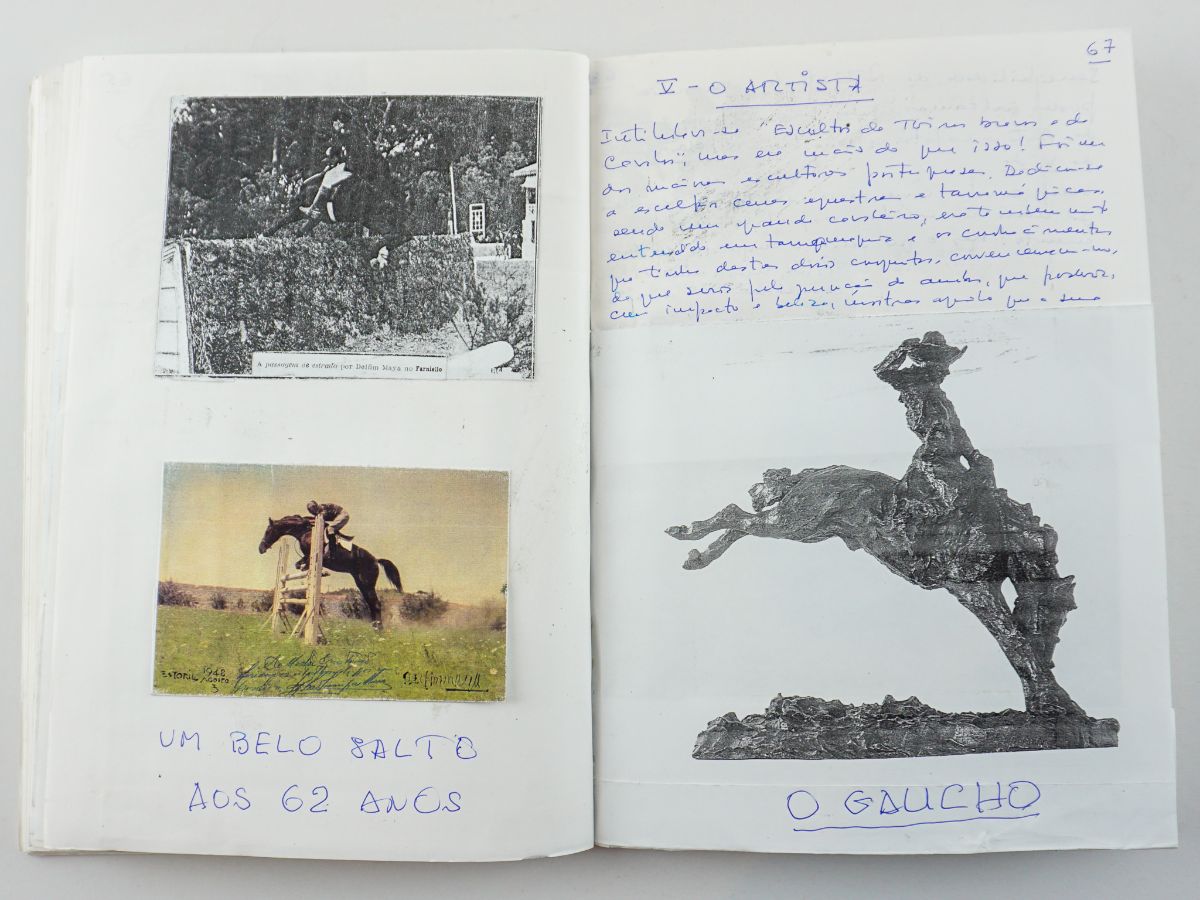 A passagem de estrada por Delfim Maya no Farniello
ESTORIL 1948 AGOSTO 3
Delfim Maya
UM BELO SALTO
AOS 62 ANOS
67
V - O ARTISTA
Intitulava-se "Escultor de Toiros bravos e de
Cavalos", mas era mais do que isso! Foi um
dos maiores escultores portugueses. Dedicou-se
a esculpir cenas equestres e tauromáquicas,
sendo um grande cavaleiro, era também muito
entendido em tauromaquia e os conhecimentos
que tinha destes dois conjuntos, convenceram-no,
de que seria pela junção de ambos, que poderia,
com impacto e beleza, mostrar aquilo que a sua
O GAUCHO